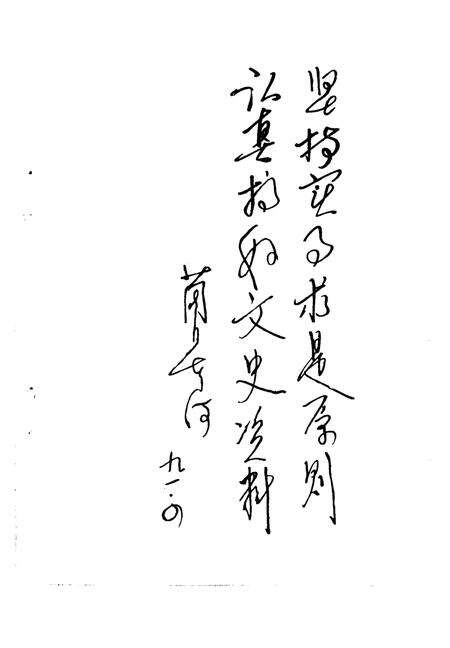 坚持实事求是原则
认真搞好文史资料
萧
九一·四